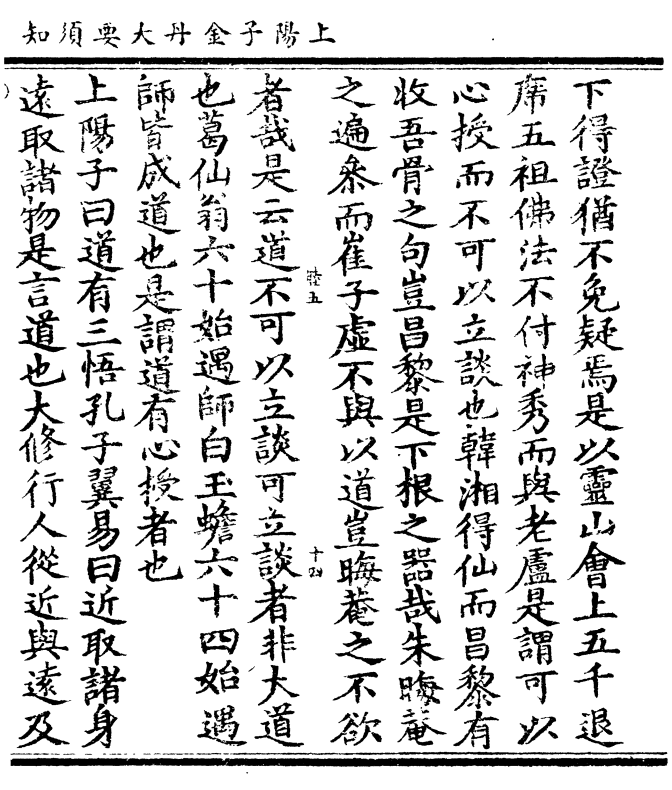 上陽子金丹大要須知
下得證猶不免疑焉是以靈山會上五千退
席五祖佛法不付神秀而與老盧是謂可以
心授而不可以立談也韓湘得仙而昌黎有
收吾骨之句豈昌黎是下根之器哉朱晦菴
之遍叅而崔子虛不與以道豈晦菴之不欲
睦五
十四
者哉是云道不可以立談可立談者非大道
也葛仙翁六十始遇師白玉蟾六十四始遇
師皆成道也是謂道有心授者也
上陽子曰道有三悟孔子翼易曰近取諸身
遠取諸物是言道也大修行人從近與遠及